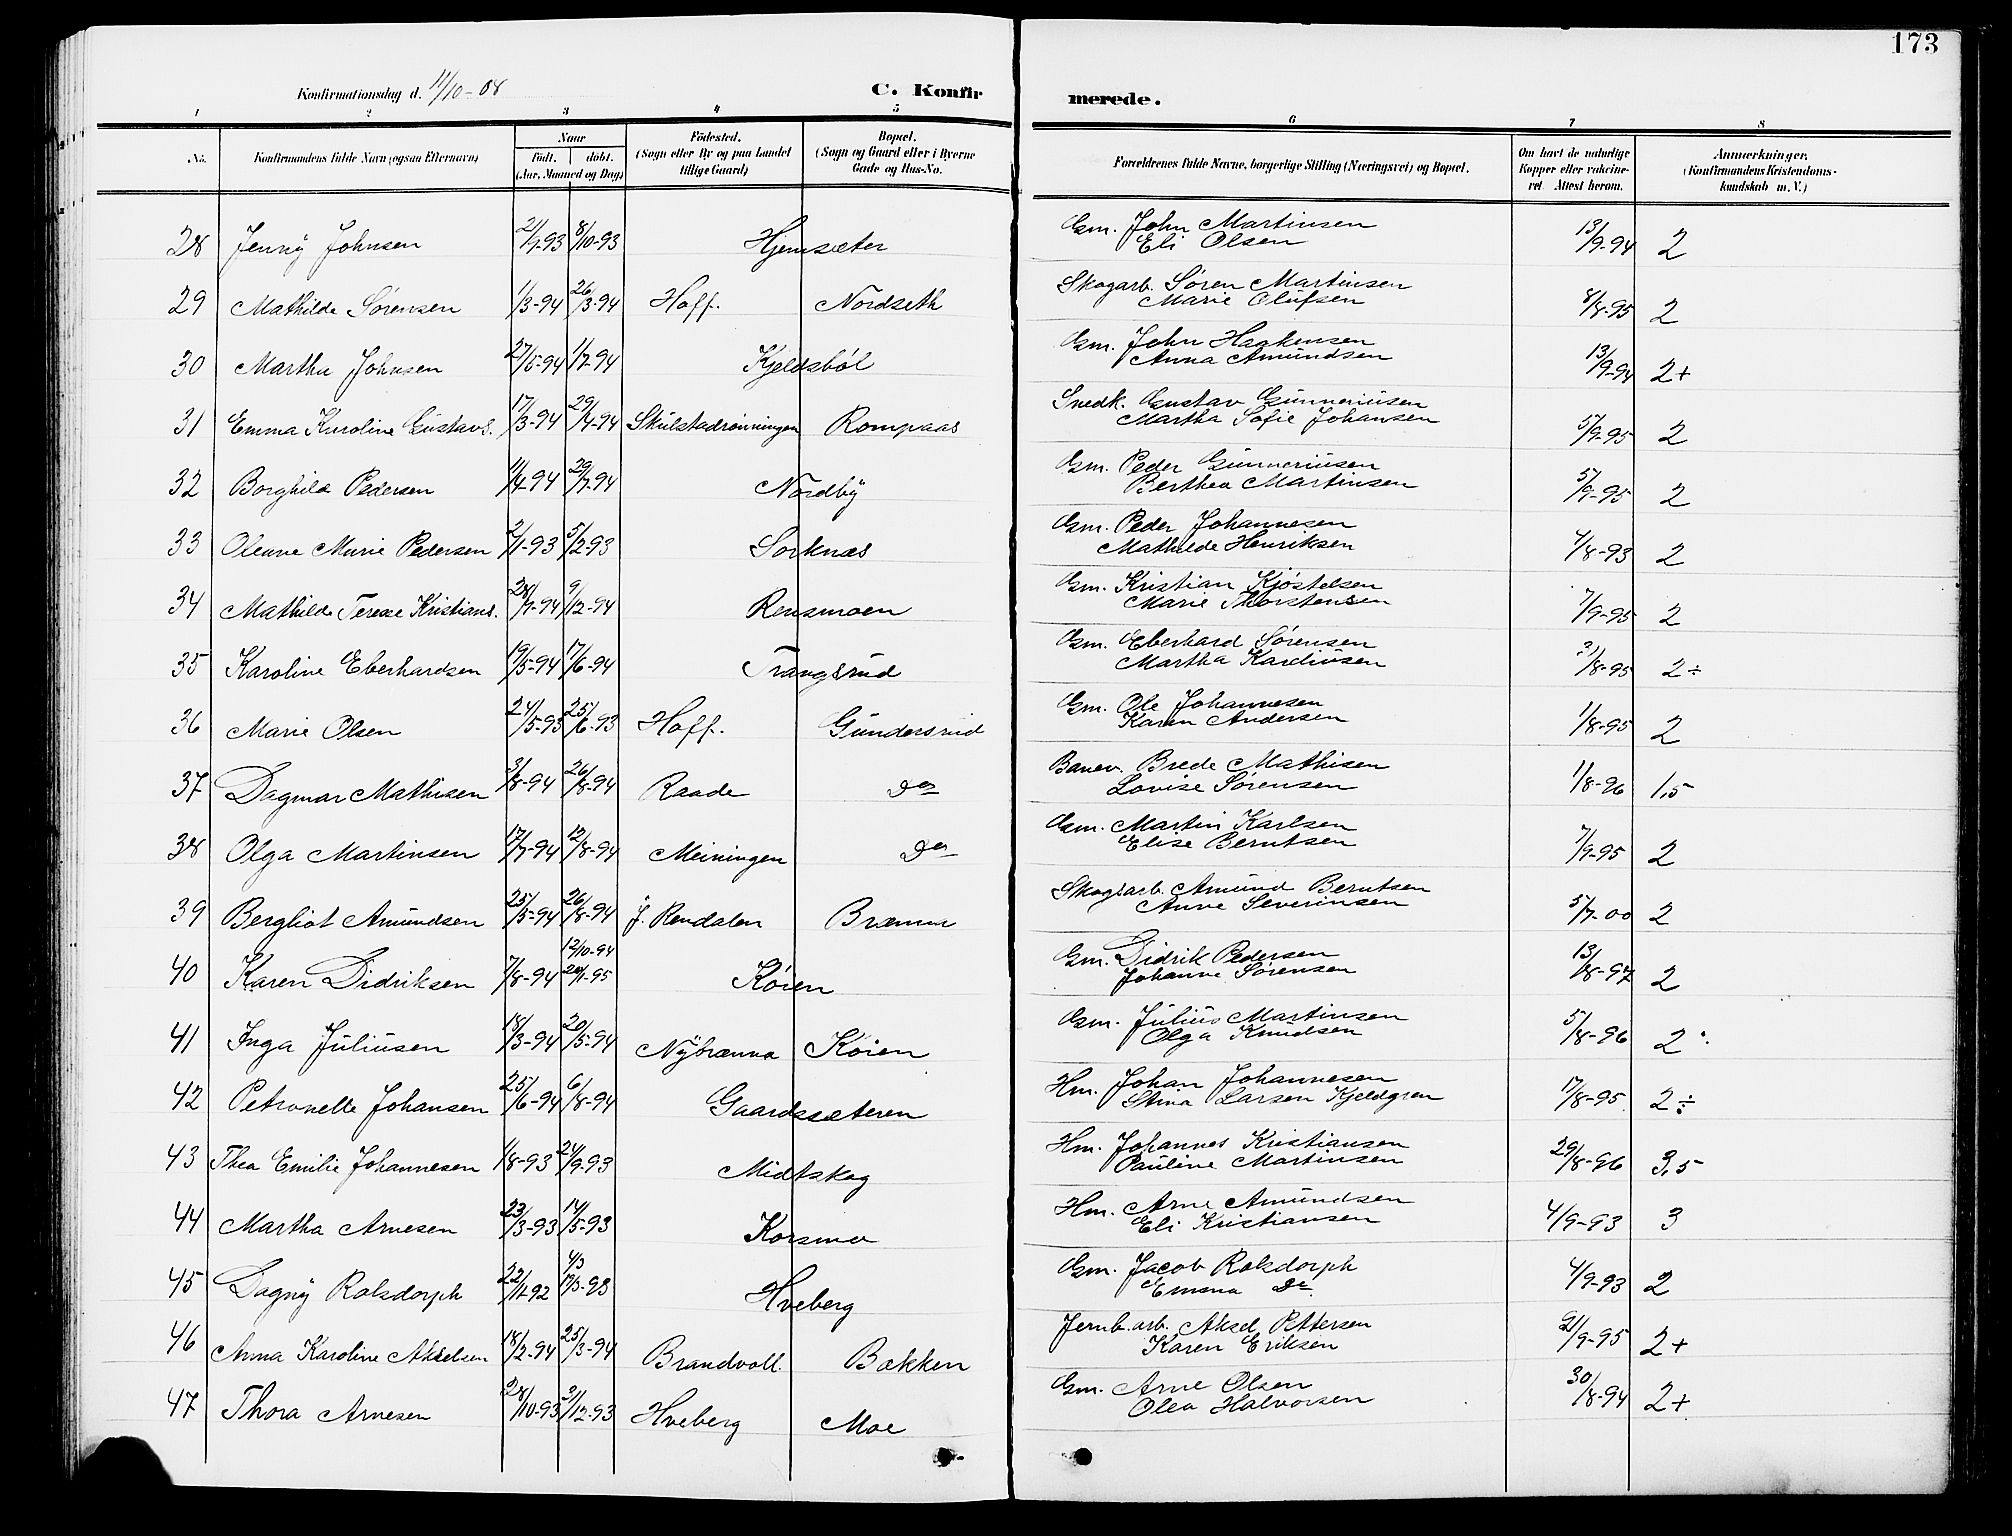 173
Konfirmationsdag d. 11/10-08
C. Konfirmerede.
1 2 3 4 5 6 7 8
No.
Konfirmandens fulde Navn (ogsaa Efternavn)
Naar
født. døbt.
(Aar, Maaned og Dag)
Fødested.
(Sogn eller By og paa Landet
tillige Gaard)
Bopæl.
(Sogn og Gaard eller i Byerne
Gade og Hus-No.
Forældrenes fulde Navne, borgerlige Stilling (Næringsvei) og Bopæl.
Om havt de naturlige
Kopper eller vakcine-
ret. Attest herom.
Anmærkninger.
(Konfirmandens Kristendoms-
kundskab m. V.)
28 Jenny Johnsen 21/9-93 8/10-93 Hjemsæter Gm. John Martinsen 13/9-94 2
Eli Olsen
29 Mathilde Sørensen 1/3-94 26/3-94 Hoff. Nordseth Skogarb. Søren Martinsen 8/8-95 2
Marie Olufsen
30 Martha Johnsen 27/5-94 1/7-94 Kjeldsböl Gm. John Haakensen 13/9-94 2+
Anna Amundsen
31 Emma Karoline Gustavs. 17/3-94 29/4-94 Skulstadrønningen Rompaas Snedk. Gustav Gunneriusen 5/9-95 2
Martha Sofie Johansen
32 Borghild Pedersen 11/4-94 29/7-94 Nordby Gm. Peder Gunneriusen 5/9-95 2
Berthea Martinsen
33 Oleane Marie Pedersen 2/1-93 5/2-93 Sorknæs Gm. Peder Johannesen 4/8-93 2
Mathilde Henriksen
34 Mathilde Terese Kristians. 28/9-94 9/12-94 Rensmoen Gm. Kristian Kjøstelsen 7/9-95 2
Marie Thorstensen
35 Karoline Eberhardsen 19/5-94 17/6-94 Trangsrud Gm. Eberhard Sørensen 3/8-95 2÷
Martha Kardiusen
36 Marie Olsen 24/5-93 25/6-93 Hoff. Gundersrud Gm. Ole Johannesen 1/8-95 2
Karen Andersen
37 Dagmar Mathisen 3/8-94 26/8-94 Raade Do Banev. Brede Mathisen 1/8-96 1,5
Lovise Sørensen
38 Olga Martinsen 17/7-94 12/8-94 Meiningen Do Gm. Martin Karlsen 7/9-95 2
Elise Berntsen
39 Bergliot Amundsen 25/5-94 26/8-94 Y. Rendalen Brænna Skogsarb. Amund Berntsen 5/7-00 2
Anne Severinsen
12/10-94
40 Karen Didriksen 7/8-94 20/1-95 Køien Gm. Didrik Pedersen 13/8-97 2
Johanne Sørensen
41 Inga Juliusen 18/3-94 20/5-94 Nybrænna Køien Gm. Julius Martinsen 5/8-96 2÷
Olga Knudsen
42 Petronelle Johansen 25/6-94 6/8-94 Gaardssæteren Hm. Johan Johannesen 17/8-95 2÷
Stina Larsen Kjeldgren
43 Thea Emilie Johannesen 1/8-93 24/9-93 Midtskog Hm. Johannes Kristiansen 29/8-96 3,5
Pauline Martinsen
44 Martha Arnesen 23/3-93 14/5-93 Korsmo Hm. Arne Amundsen 4/9-93 3
Eli Kristiansen
4/3
45 Dagny Rolsdorph 22/11-92 19/3-93 Hveberg Gm. Jacob Rolsdorph 4/9-93 2
Emma Do
46 Anna Karoline Akselsen 18/2-94 25/3-94 Brandvoll Bakken Jernb.arb. Aksel Pettersen 21/9-95 2+
Karen Eriksen
47 Thora Arnesen 28/10-93 3/12-93 Hveberg Moe Gm. Arne Olsen 30/8-94 2+
Olea Halvorsen